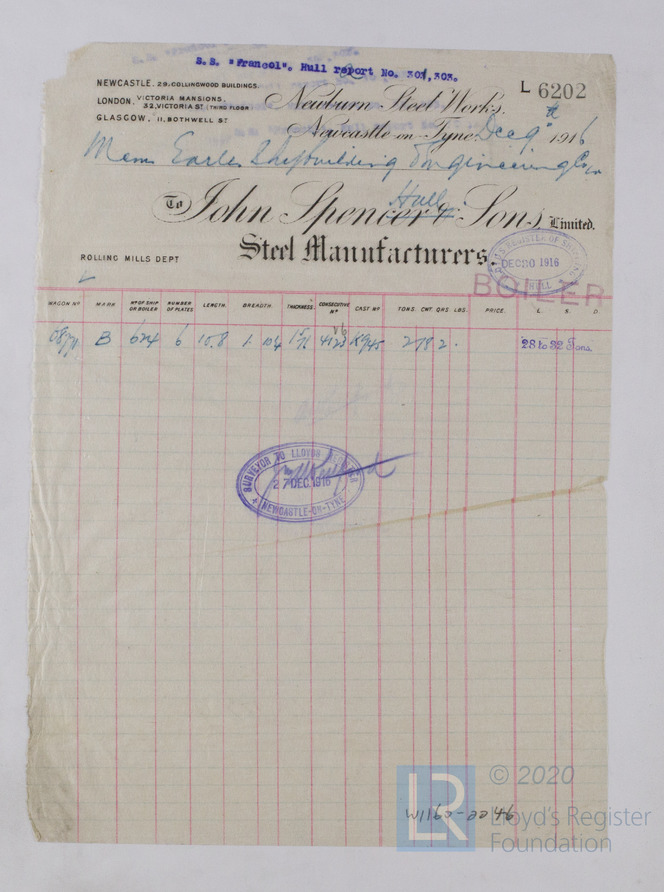 S.S. "Francol". Hull report No. 303.
NEWCASTLE. 29, COLLINGWOOD BUILDINGS.
LONDON, VICTORIA MANSIONS, 32, VICTORIA ST. (THIRD FLOOR)
GLASGOW, 11, BOTHWELL ST
L 6202
Newburn Steel Works.
Newcastle on Tyne, Dec 9th 1916
Earles Shipbuilding & Engineering Co
Hull
To John Spencer & Sons, Limited.
Steel Manufacturers.
ROLLING MILLS DEPT
LLOYD'S REGISTER OF SHIPPING
DEC 20 1916
HULL
BOILER
WAGON Nº MARK Nº OF SHIP OR BOILER NUMBER OF PLATES LENGTH. BREADTH. THICKNESS. CONSECUTIVE Nº CAST Nº TONS. CWT. QRS. LBS. PRICE. L. S. D.
B 624 6 10.8 28 to 32 Tons.
SURVEYOR TO LLOYDS REGISTER
27 DEC. 1916
NEWCASTLE-ON-TYNE
© 2020
LR
Lloyd's Register
Foundation